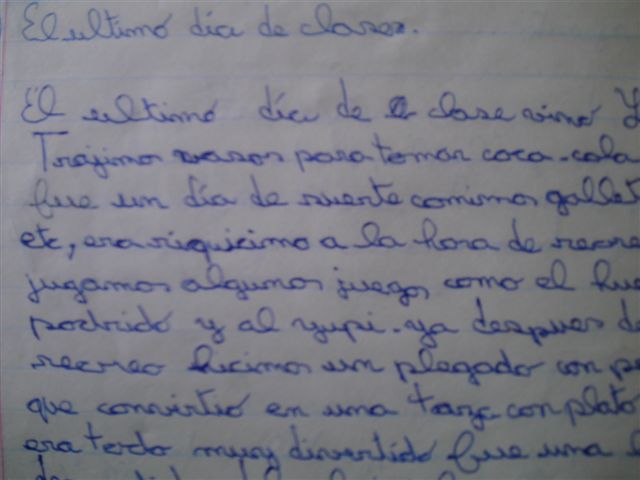 El ultimo día de clases.
El ultimó día de clase vinó Y
Trajimos vasos para tomar coca-cola
fue un día de suerte comimos gallet
etc, era riquicimo a la hora de recre
jugamos algunos juegos como el hue
podrido y al yupi. ya despues de
recreo hicimos un plegado con pa
que convirtió en una taza con plato
era todo muy divertido fue una